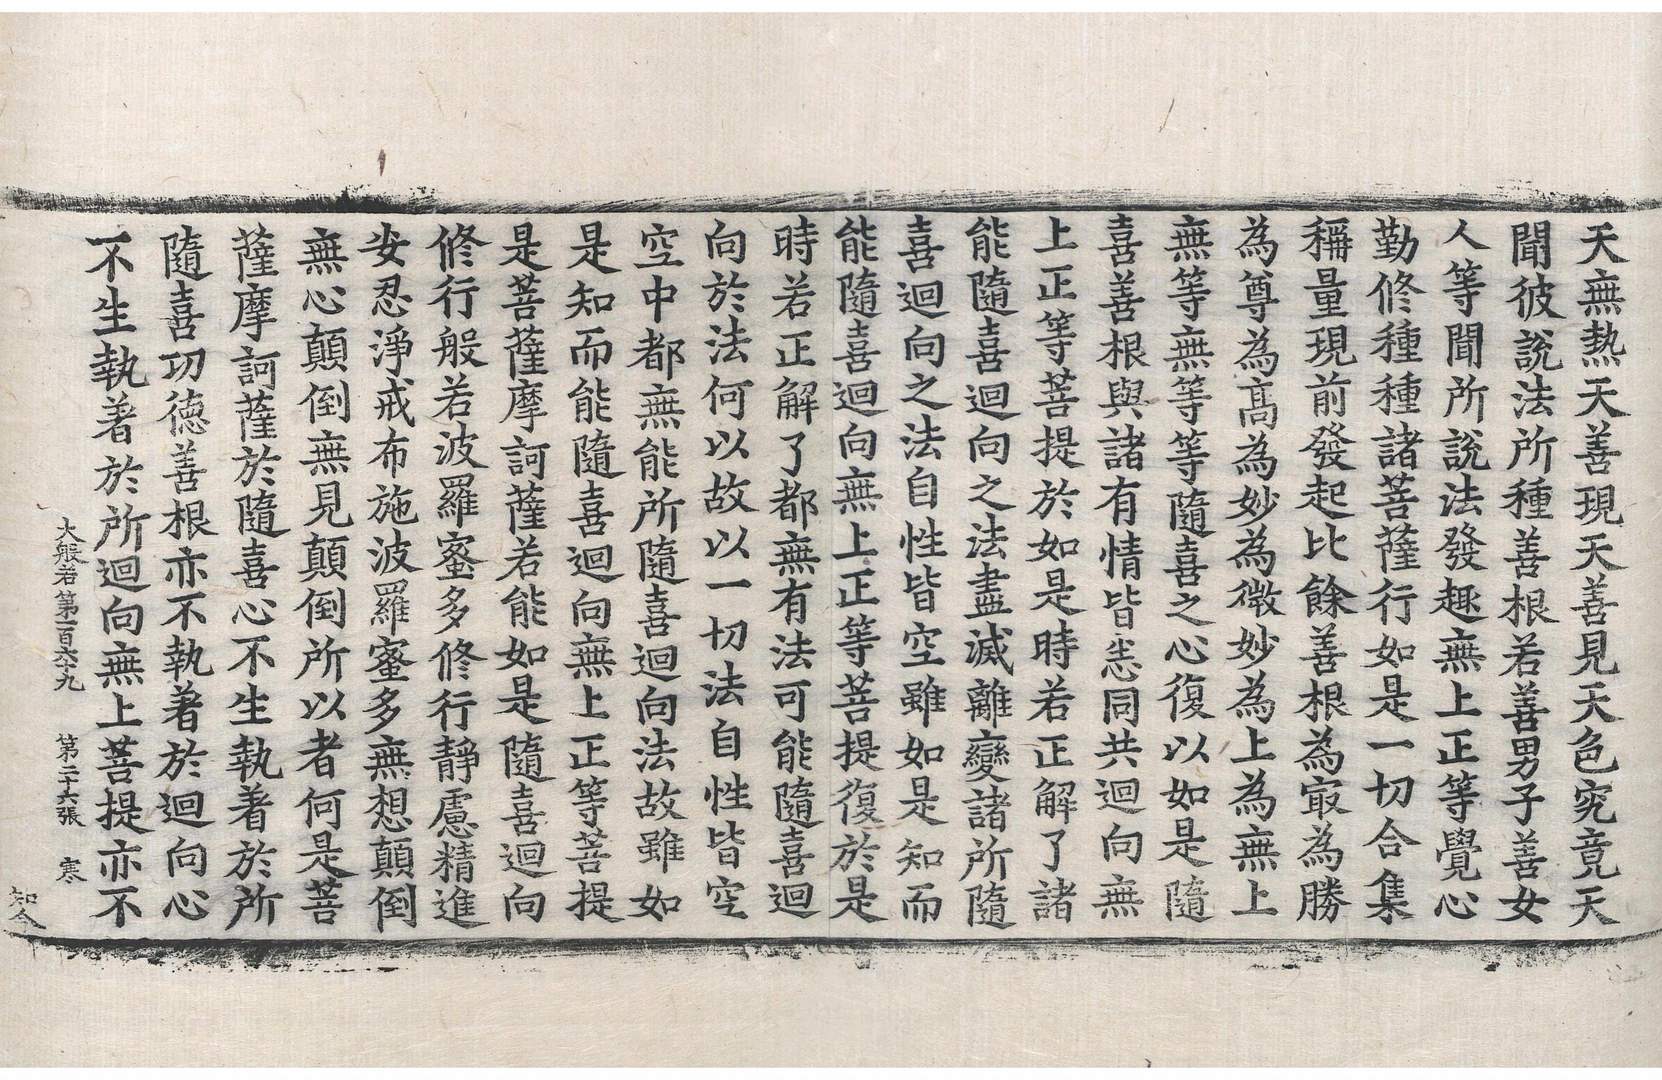 天無熱天善現天善見天色究竟天
聞彼說法所種善根若善男子善女
人等聞所說法發趣無上正等覺心
勤修種種諸菩薩行如是一切合集
稱量現前發起比餘善根為冣為勝
為尊為高為妙為微妙為上為無上
無等無等等隨喜之心復以如是隨
喜善根與諸有情皆悉同共迴向無
上正等菩提於如是時若正解了諸
能隨喜迴向之法盡滅離變諸所隨
喜迴向之法自性皆空雖如是知而
能隨喜迴向無上正等菩提復於是
時若正解了都無有法可能隨喜迴
向於法何以故以一切法自性皆空
空中都無能所隨喜迴向法故雖如
是知而能隨喜迴向無上正等菩提
是菩薩摩訶薩若能如是隨喜迴向
修行般若波羅蜜多修行靜慮精進
安忍淨戒布施波羅蜜多無想顛倒
無心顛倒無見顛倒所以者何是菩
薩摩訶薩於隨喜心不生執著於所
隨喜功德善根亦不執著於迴向心
不生執著於所迴向無上菩提亦不
大般若第一百六十九 第二十六張 寒
知令